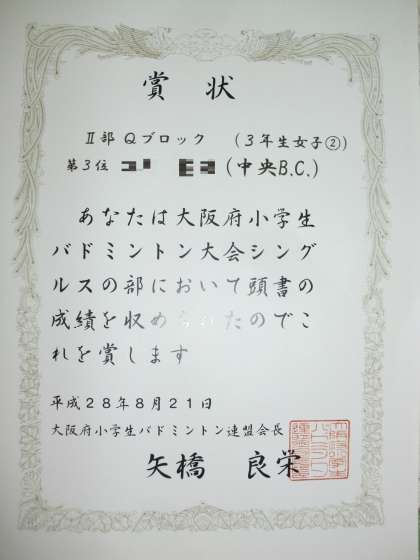 賞状
Ⅱ部 Qブロック (3年生女子②)
第3位 (中央B.C.)
あなたは大阪府小学生
バドミントン大会シング
ルスの部において頭書の
成績を収められたのでこ
れを賞します
平成28年8月21日
大阪府小学生バドミントン連盟会長
矢橋 良栄